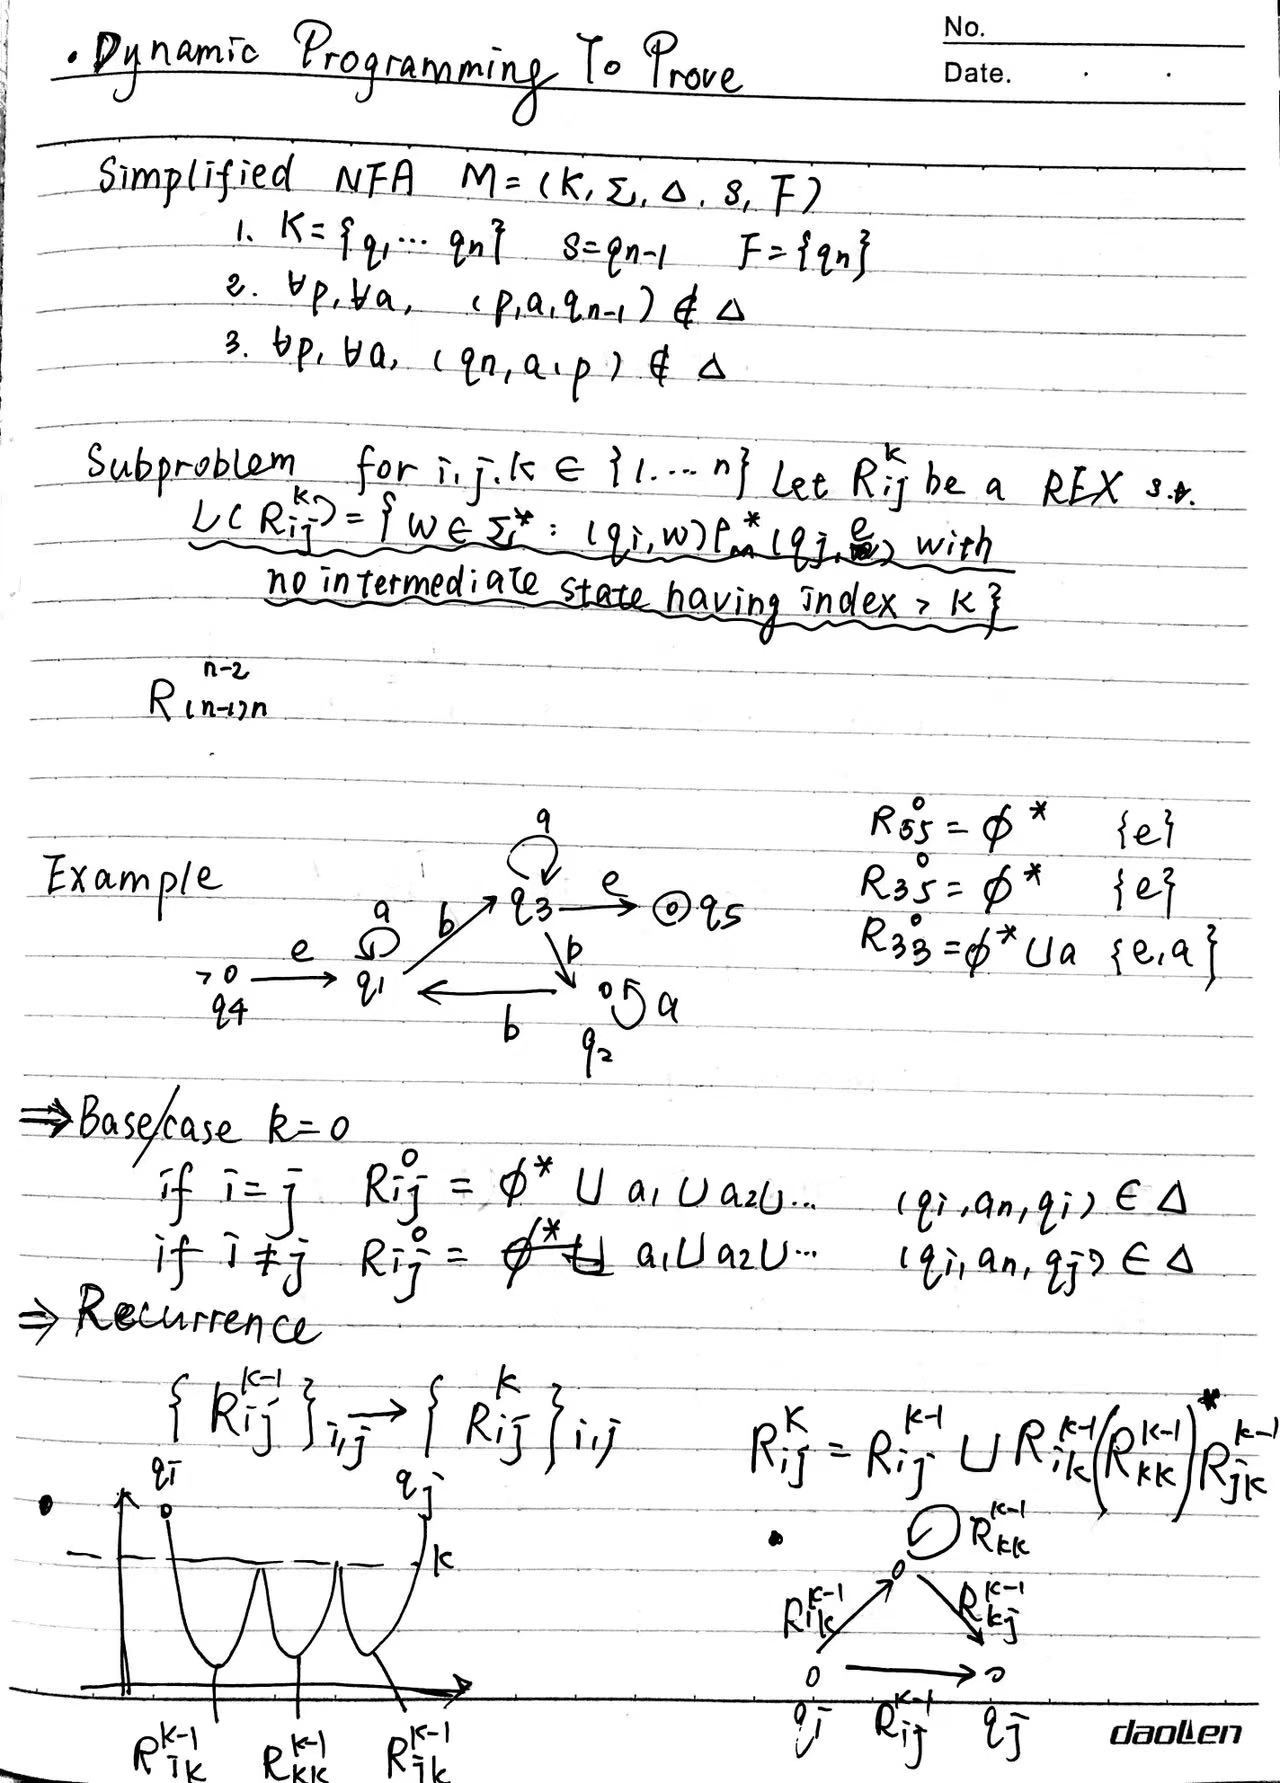 No.
· Dynamic Programming To Prove
Date. · ·
Simplified NFA M=(K,Σ,Δ,s,F)
1. K={q1⋯qn} s=qn-1 F={qn}
2. ∀p,∀a, (p,a,qn-1)∉Δ
3. ∀p,∀a, (qn,a,p)∉Δ
Subproblem for i,j,k∈{1.⋯n} Let Rij^k be a REX s.t.
L(Rij^k)={w∈Σ*: (qi,w)⊢M*(qj,e) with
no intermediate state having index > k}
R(n-1)n^n-2
R55^0=ϕ* {e}
R35^0=ϕ* {e}
R33^0=ϕ*∪a {e,a}
Example
a
a b q3 e q5
>o e q1 b
q4 b a
q2
⇒Base/case k=0
if i=j Rij^0=ϕ*∪a1∪a2∪⋯ (qi,an,qi)∈Δ
if i≠j Rij^0= a1∪a2∪⋯ (qi,an,qj)∈Δ
⇒Recurrence
{Rij^k-1}i,j→{Rij^k}i,j Rij^k=Rij^k-1∪Rik^k-1(Rkk^k-1)*Rjk^k-1
qi qj
k
Rkk^k-1
Rik^k-1 Rkj^k-1
qi Rij^k-1 qj
Rik^k-1 Rkk^k-1 Rjk^k-1
daolen